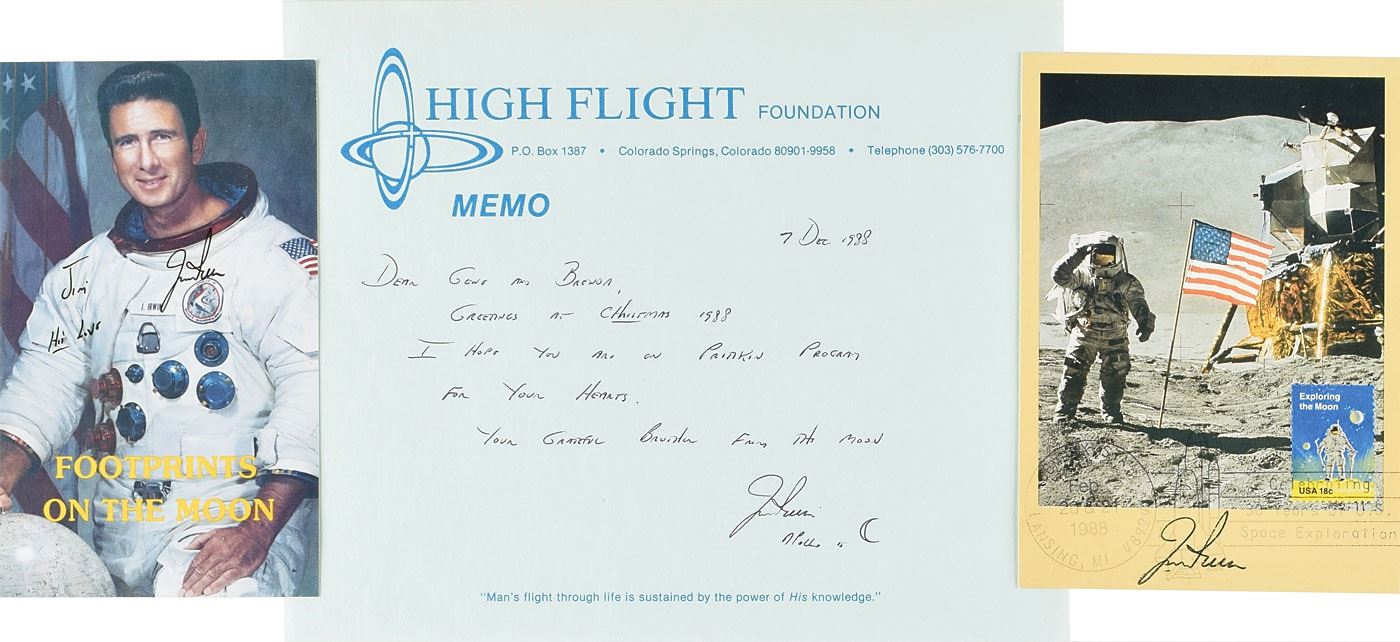 Jim
His Love
Jim Irwin
J. IRWIN
FOOTPRINTS
ON THE MOON
HIGH FLIGHT FOUNDATION
P.O. Box 1387 • Colorado Springs, Colorado 80901-9958 • Telephone (303) 576-7700
MEMO
7 Dec 1988
Dear Gene and Brenda,
Greetings at Christmas 1988
I Hope You Are on Pritikin Program
For Your Hearts.
Your Grateful Brother From the Moon
Jim Irwin
Apollo 15
"Man's flight through life is sustained by the power of His knowledge."
Exploring
the Moon
USA 18c
Feb
1988
LANSING, MI 48924
Years of U.S.
Space Exploration
Jim Irwin